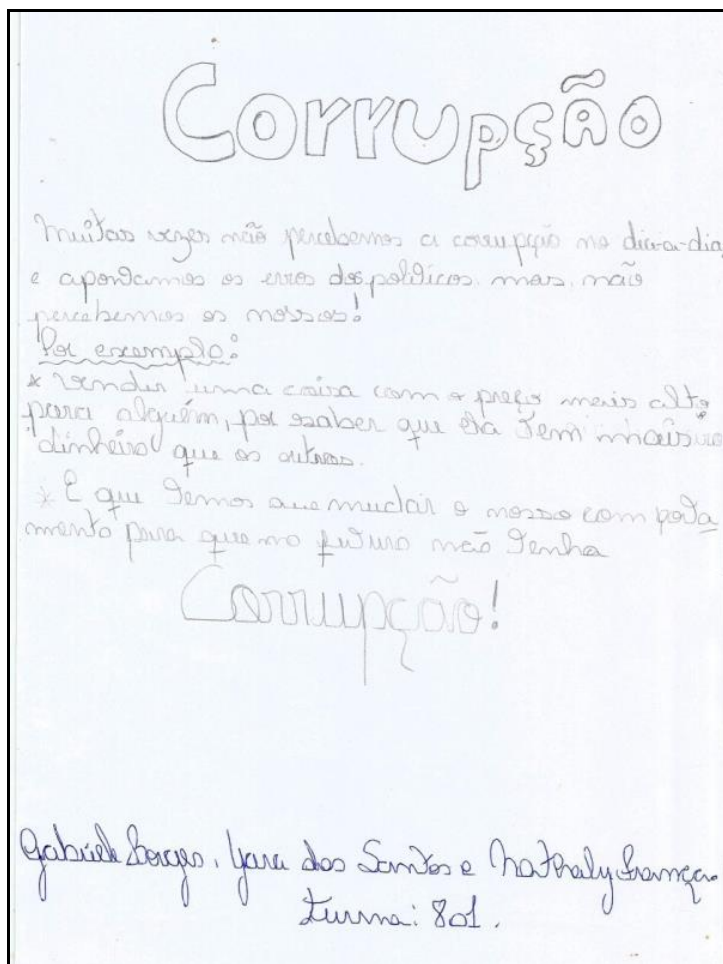 Corrupção
Muitas vezes não percebemos a corrupção no dia-a-dia,
e apontamos os erros dos politicos mais não
percebemos os nossos!
Por exemplo:
* Vender uma coisa com o preço mais alto
para alguém, por saber que ela tem mais
dinheiro que os outros.
* E que temos que mudar o nosso comporta
mento para que no futuro não tenha
Corrupção!
Gabriele Borges, Yara dos Santos e Nathaly França.
Turma: 801.